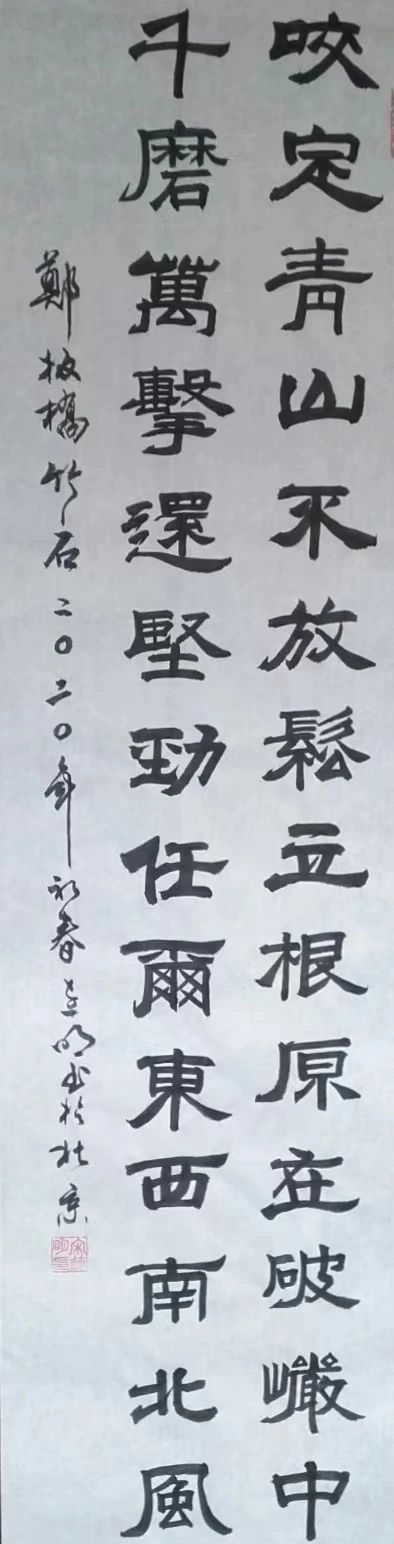 咬定青山不放鬆立根原在破巗中
千磨萬擊還堅勁任爾東西南北風
鄭板橋竹石二〇二〇年初春明书於北京